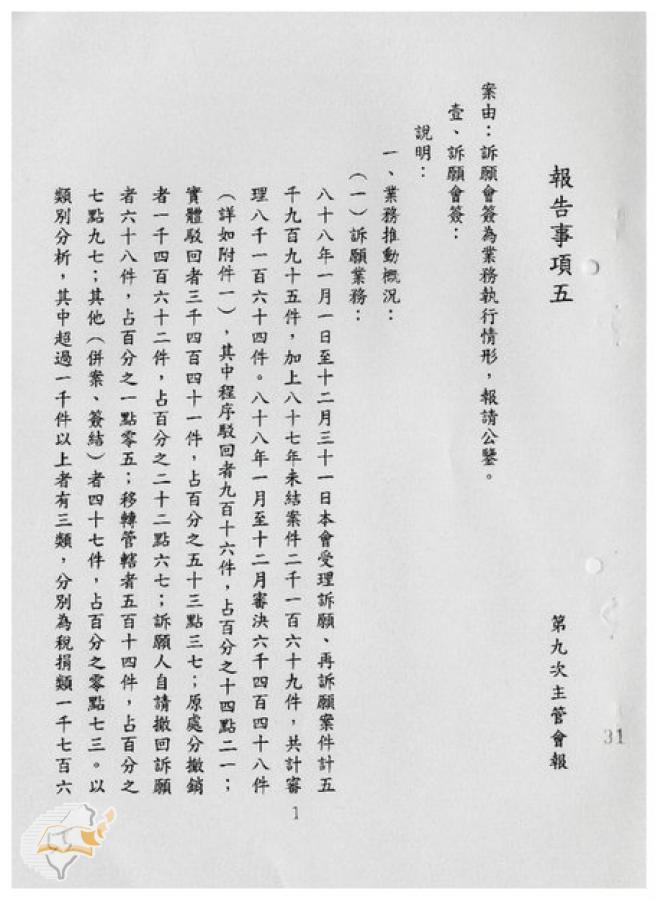 報告事項五
第九次主管會報
31
案由：訴願會簽為業務執行情形，報請公鑒。
壹、訴願會簽：
說明：
一、業務推動概況：
（一）訴願業務：
八十八年一月一日至十二月三十一日本會受理訴願、再訴願案件計五
千九百九十五件，加上八十七年未結案件二千一百六十九件，共計審
理八千一百六十四件。八十八年一月至十二月審決六千四百四十八件
（詳如附件一），其中程序駁回者九百十六件，占百分之十四點二一；
實體駁回者三千四百四十一件，占百分之五十三點三七；原處分撤銷
者一千四百六十二件，占百分之二十二點六七；訴願人自請撤回訴願
者六十八件，占百分之一點零五；移轉管轄者五百十四件，占百分之
七點九七；其他（併案、簽結）者四十七件，占百分之零點七三。以
類別分析，其中超過一千件以上者有三類，分別為稅捐類一千七百六
1